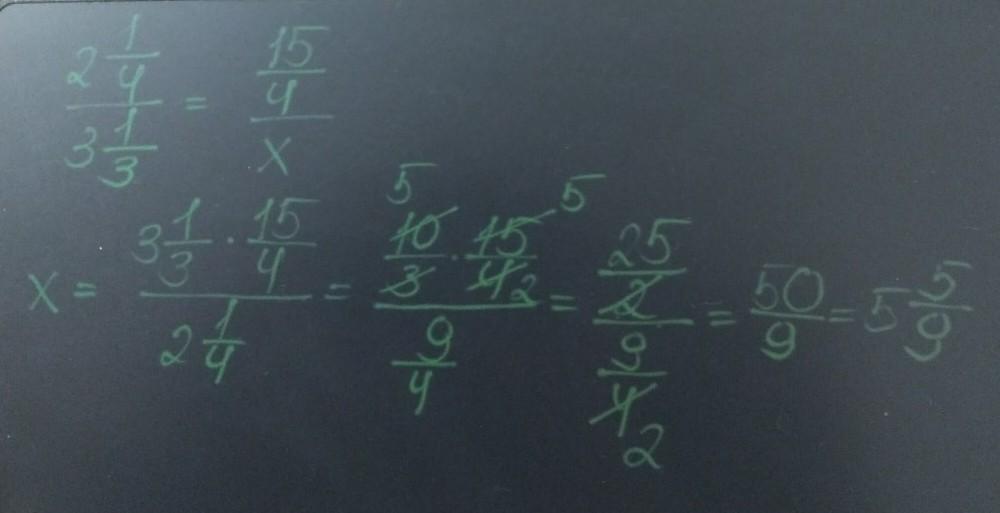 (2 1/4)/(3 1/3) = (15/4)/x
x = (3 1/3 · 15/4)/(2 1/4) = (10/3 · 15/4)/(9/4) 5 5 2 = (25/2)/(9/4) 2 = 50/9 = 5 5/9